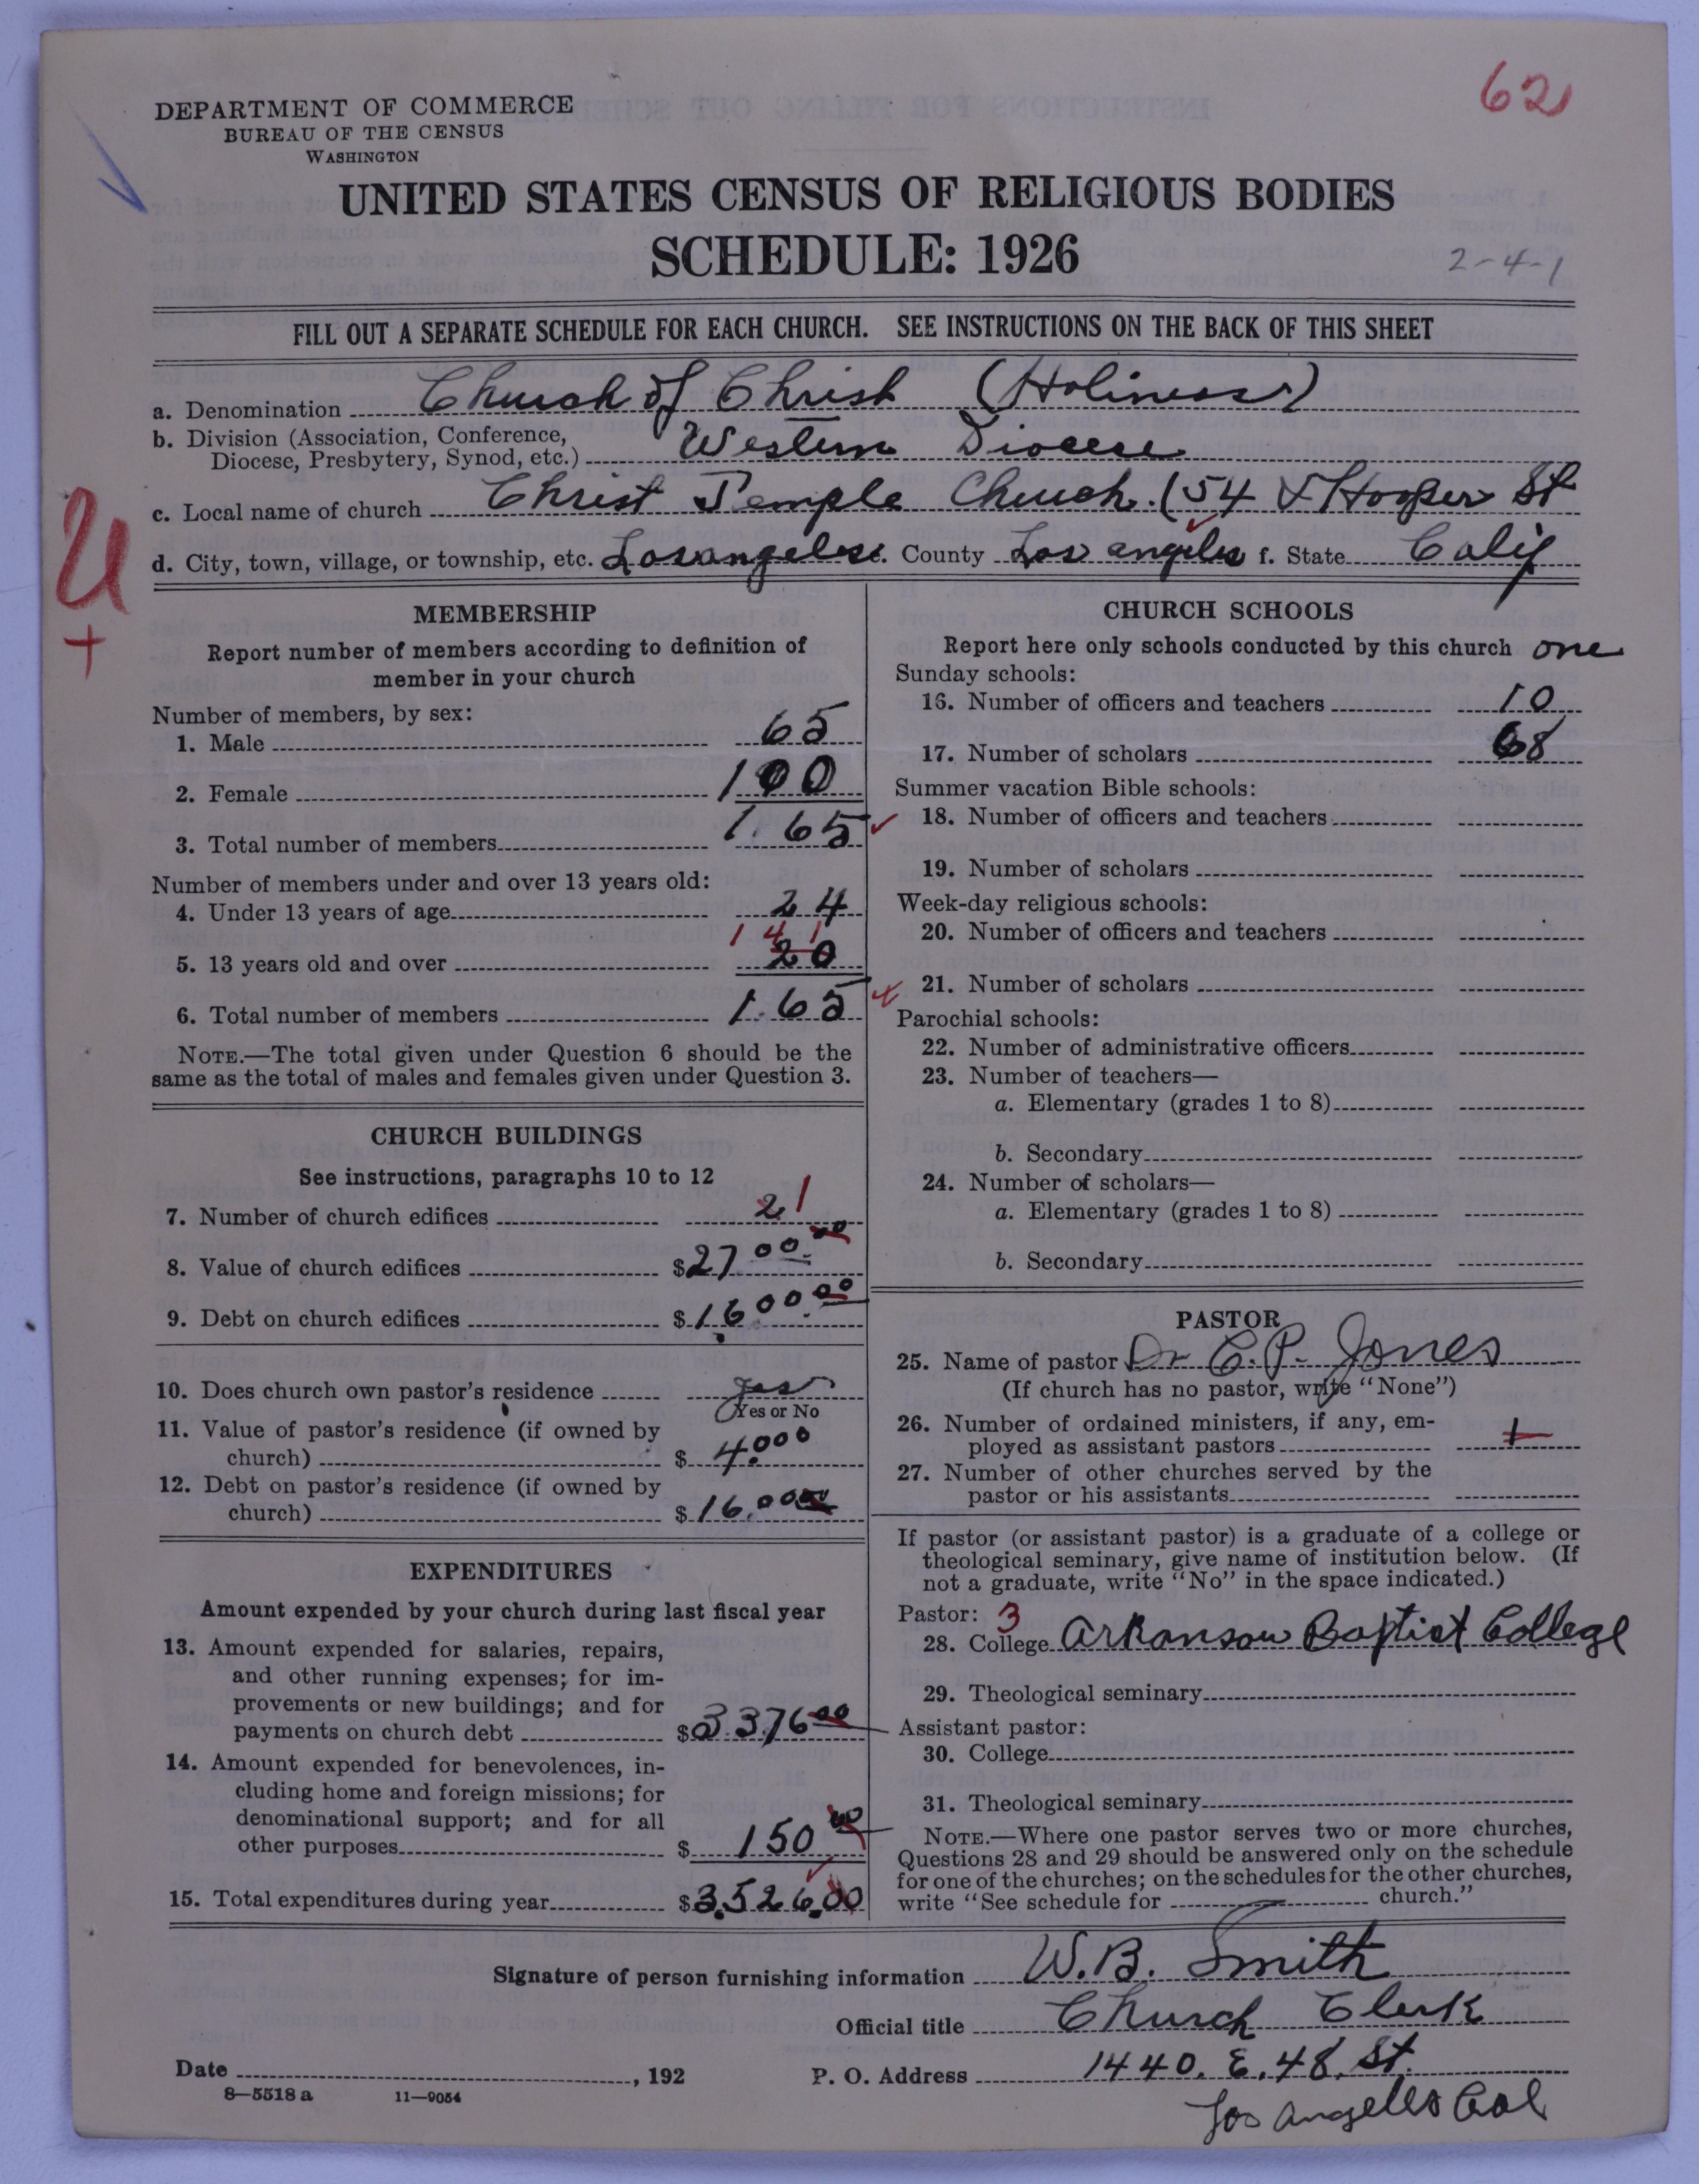 62
DEPARTMENT OF COMMERCE
BUREAU OF THE CENSUS
WASHINGTON
UNITED STATES CENSUS OF RELIGIOUS BODIES
SCHEDULE: 1926
2-4-1
FILL OUT A SEPARATE SCHEDULE FOR EACH CHURCH. SEE INSTRUCTIONS ON THE BACK OF THIS SHEET
a. Denomination Church of Christ (Holiness)
b. Division (Association, Conference,
Diocese, Presbytery, Synod, etc.) Western Diocese
c. Local name of church Christ Temple Church (54 & Hooper St
d. City, town, village, or township, etc. Los angeles e. County Los angeles f. State Calif
U
+
MEMBERSHIP
Report number of members according to definition of
member in your church
Number of members, by sex:
1. Male 65
2. Female 100
3. Total number of members 1.65
Number of members under and over 13 years old:
4. Under 13 years of age 24
141
5. 13 years old and over 20
6. Total number of members 1.65
NOTE.—The total given under Question 6 should be the
same as the total of males and females given under Question 3.
CHURCH BUILDINGS
See instructions, paragraphs 10 to 12
7. Number of church edifices 2 1
8. Value of church edifices $2700.00
9. Debt on church edifices $1,600.00
10. Does church own pastor's residence yes
Yes or No
11. Value of pastor's residence (if owned by
church) $ 4000
12. Debt on pastor's residence (if owned by
church) $16.0000
EXPENDITURES
Amount expended by your church during last fiscal year
13. Amount expended for salaries, repairs,
and other running expenses; for im-
provements or new buildings; and for
payments on church debt $3.376 00
14. Amount expended for benevolences, in-
cluding home and foreign missions; for
denominational support; and for all
other purposes $ 150 00
15. Total expenditures during year $3,526.00
CHURCH SCHOOLS
Report here only schools conducted by this church one
Sunday schools:
16. Number of officers and teachers 10
17. Number of scholars 68
Summer vacation Bible schools:
18. Number of officers and teachers
19. Number of scholars
Week-day religious schools:
20. Number of officers and teachers
21. Number of scholars
Parochial schools:
22. Number of administrative officers
23. Number of teachers—
a. Elementary (grades 1 to 8)
b. Secondary
24. Number of scholars—
a. Elementary (grades 1 to 8)
b. Secondary
PASTOR
25. Name of pastor Dr C.P. Jones
(If church has no pastor, write "None")
26. Number of ordained ministers, if any, em-
ployed as assistant pastors 1
27. Number of other churches served by the
pastor or his assistants
If pastor (or assistant pastor) is a graduate of a college or
theological seminary, give name of institution below. (If
not a graduate, write "No" in the space indicated.)
Pastor: 3
28. College Arkansaw Baptist College
29. Theological seminary
Assistant pastor:
30. College
31. Theological seminary
NOTE.—Where one pastor serves two or more churches,
Questions 28 and 29 should be answered only on the schedule
for one of the churches; on the schedules for the other churches,
write "See schedule for church."
Signature of person furnishing information W.B. Smith
Official title Church Clerk
Date , 192 P. O. Address 1440. E. 48. St.
8—5518 a 11—9054
Los Angelles Cal